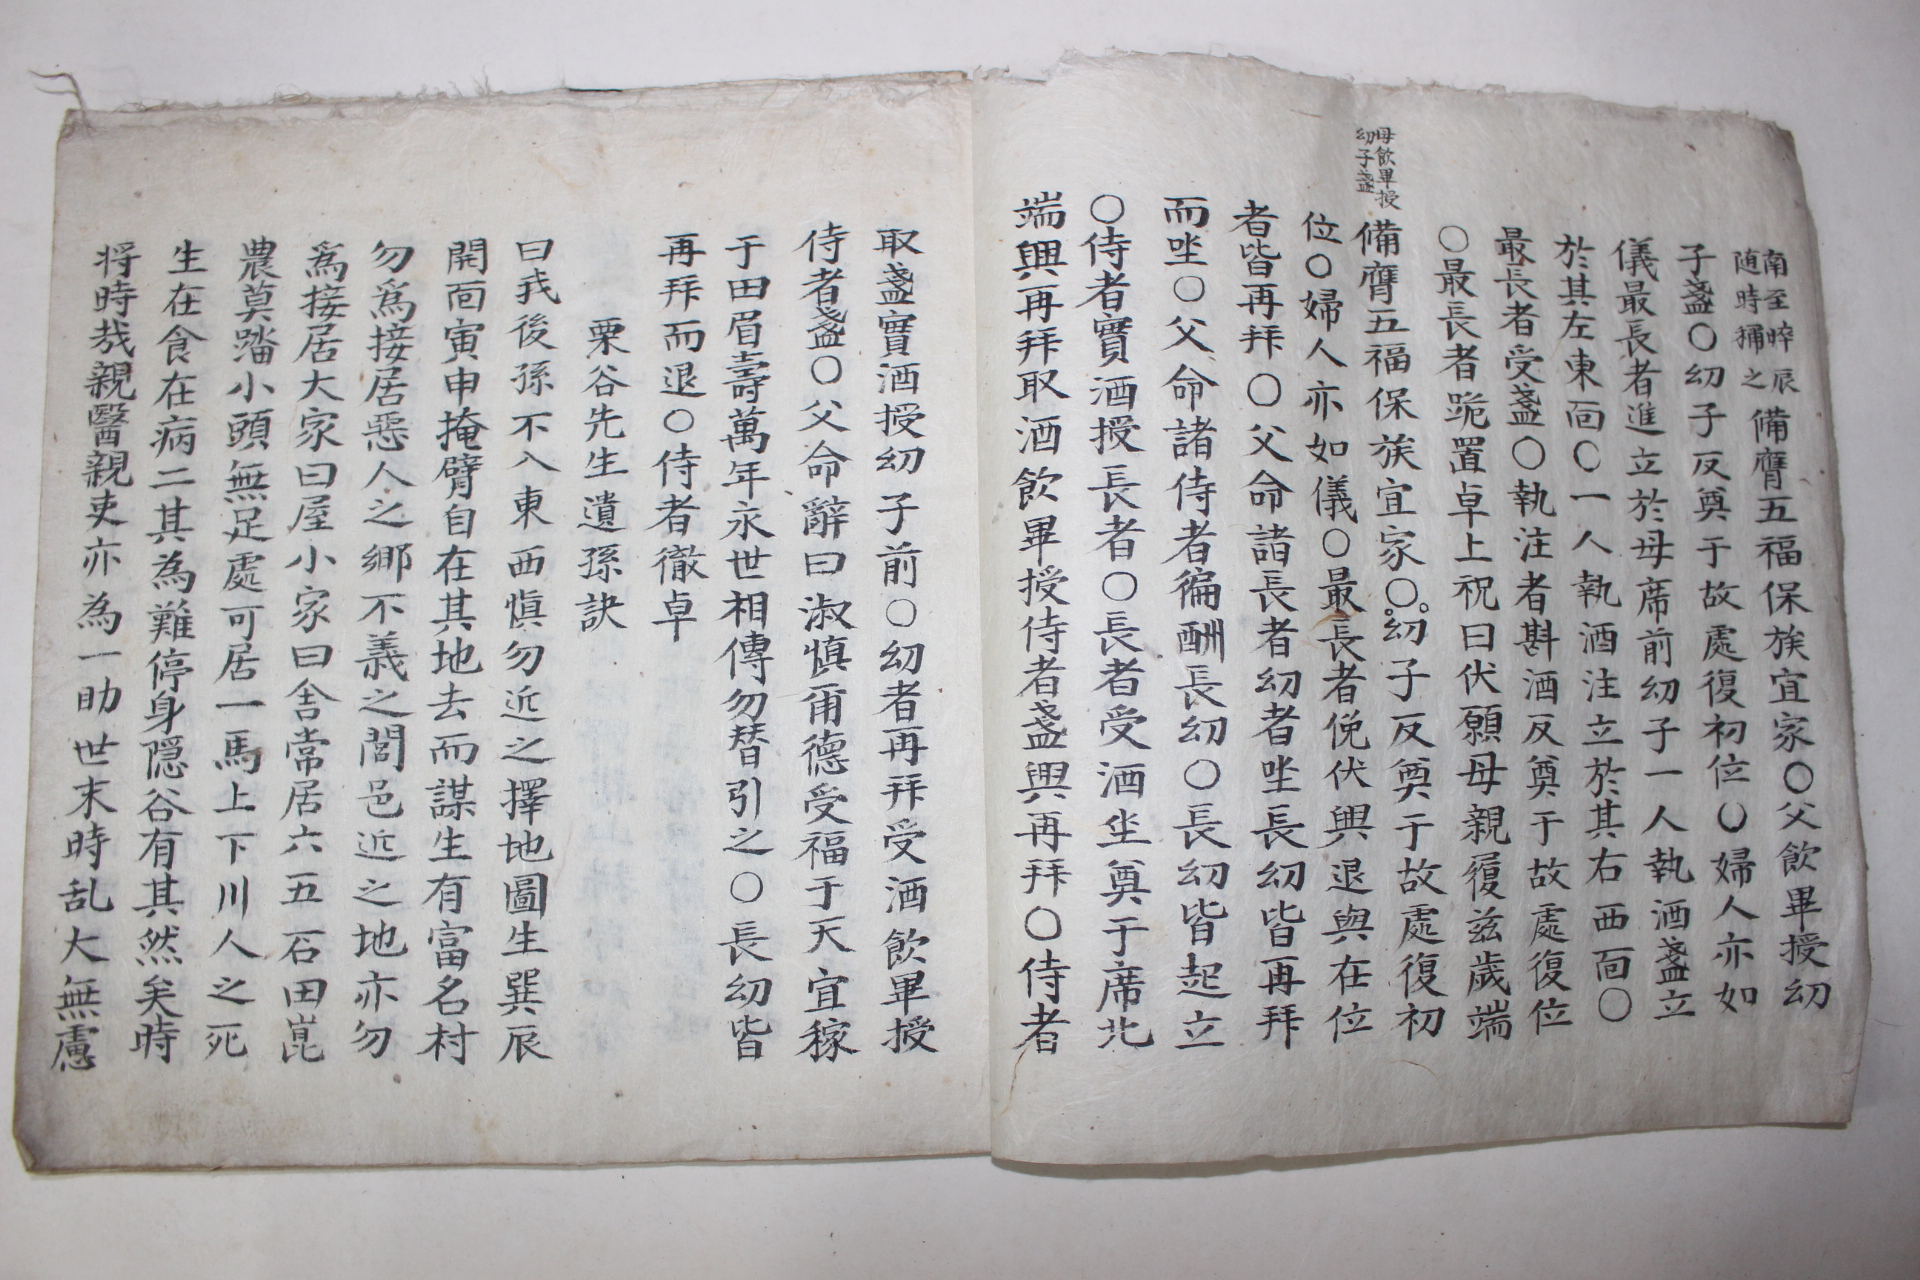 南至晬辰
随時稱之
備膺五福保族宜家〇父飮畢授幼
子盞〇幼子反奠于故處復初位〇婦人亦如
儀最長者進立於母席前幼子一人執酒盞立
於其左東面〇一人執酒注立於其右西面〇
最長者受盞〇執注者斟酒反奠于故處復位
〇最長者跪置卓上祝曰伏願母親履玆歲端
母飮畢授
幼子盞
備膺五福保族宜家〇幼子反奠于故處復初
位〇婦人亦如儀〇最長者俛伏興退與在位
者皆再拜〇父命諸長者幼者坐長幼皆再拜
而坐〇父命諸侍者徧酬長幼〇長幼皆起立
〇侍者實酒授長者〇長者受酒坐奠于席北
端興再拜取酒飮畢授侍者盞興再拜〇侍者
取盞實酒授幼子前〇幼者再拜受酒飮畢授
侍者盞〇父命辭曰淑愼爾德受福于天宜稼
于田眉壽萬年永世相傳勿替引之〇長幼皆
再拜而退〇侍者徹卓
栗谷先生遺孫訣
曰我後孫不入東西愼勿近之擇地圖生巽辰
開面寅申掩臂自在其地去而謀生有富名村
勿爲接居惡人之鄕不義之閭邑近之地亦勿
爲接居大家曰屋小家曰舍常居六五石田崑
農莫踏小頭無足處可居一馬上下川人之死
生在食在病二其為難停身隱谷有其然矣時
将時哉親醫親吏亦為一助世末時乱大無慮